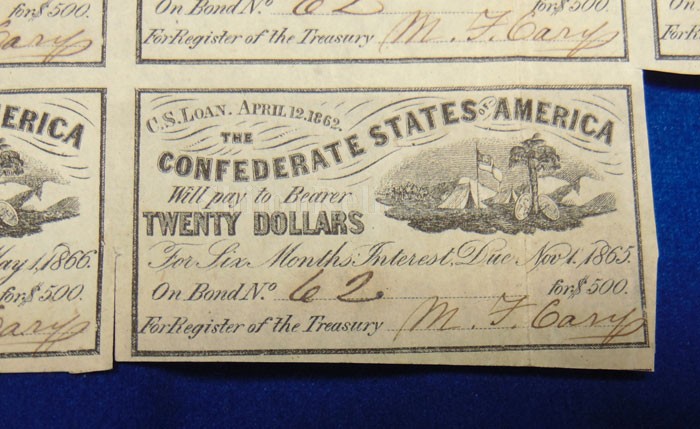 for $500.
On Bond No. 62 for $500.
Cary
For Register of the Treasury M. F. Cary
For Re
C.S. LOAN. APRIL 12, 1862.
THE
CONFEDERATE STATES OF AMERICA
Will pay to Bearer
TWENTY DOLLARS
For Six Months Interest, Due Nov 1, 1865.
On Bond No. 62 for $500.
For Register of the Treasury M. F. Cary
MERICA
May 1, 1866.
for $500.
Cary